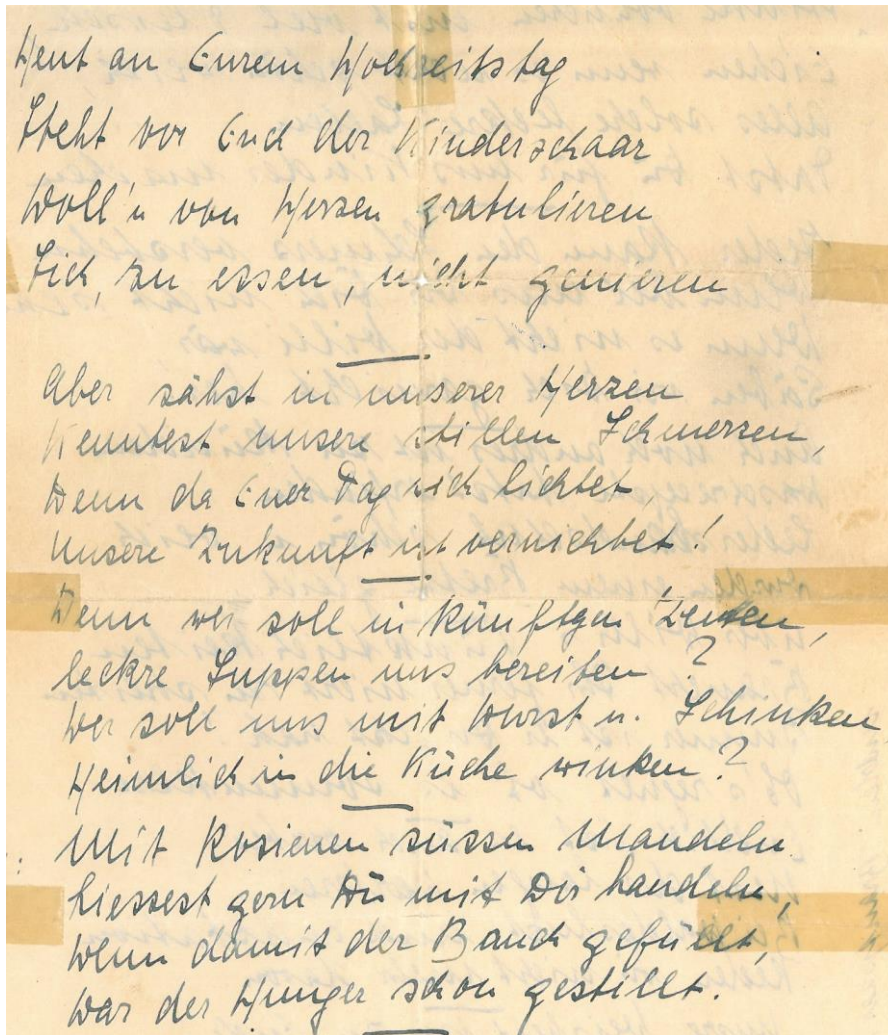 Heut an Eurem Hochzeitstag
Steht vor Euch der Kinderschaar
Woll'n von Herzen gratulieren
Sich, zu essen, nicht genieren
Aber sähst in unserer Herzen
Kenntest unsere stillen Schmerzen,
Denn da Euer Tag sich lichtet,
Unsere Zukunft ist vernichtet!
Denn wer soll in künftgen Zeiten,
leckre Suppen uns bereiten?
Wer soll uns mit Wurst u. Schinken
Heimlich in die Küche winken?
Mit Rosienen süssen Mandeln
liessest gern Du mit Dir handeln,
Wenn damit der Bauch gefüllt,
War der Hunger schon gestillt.